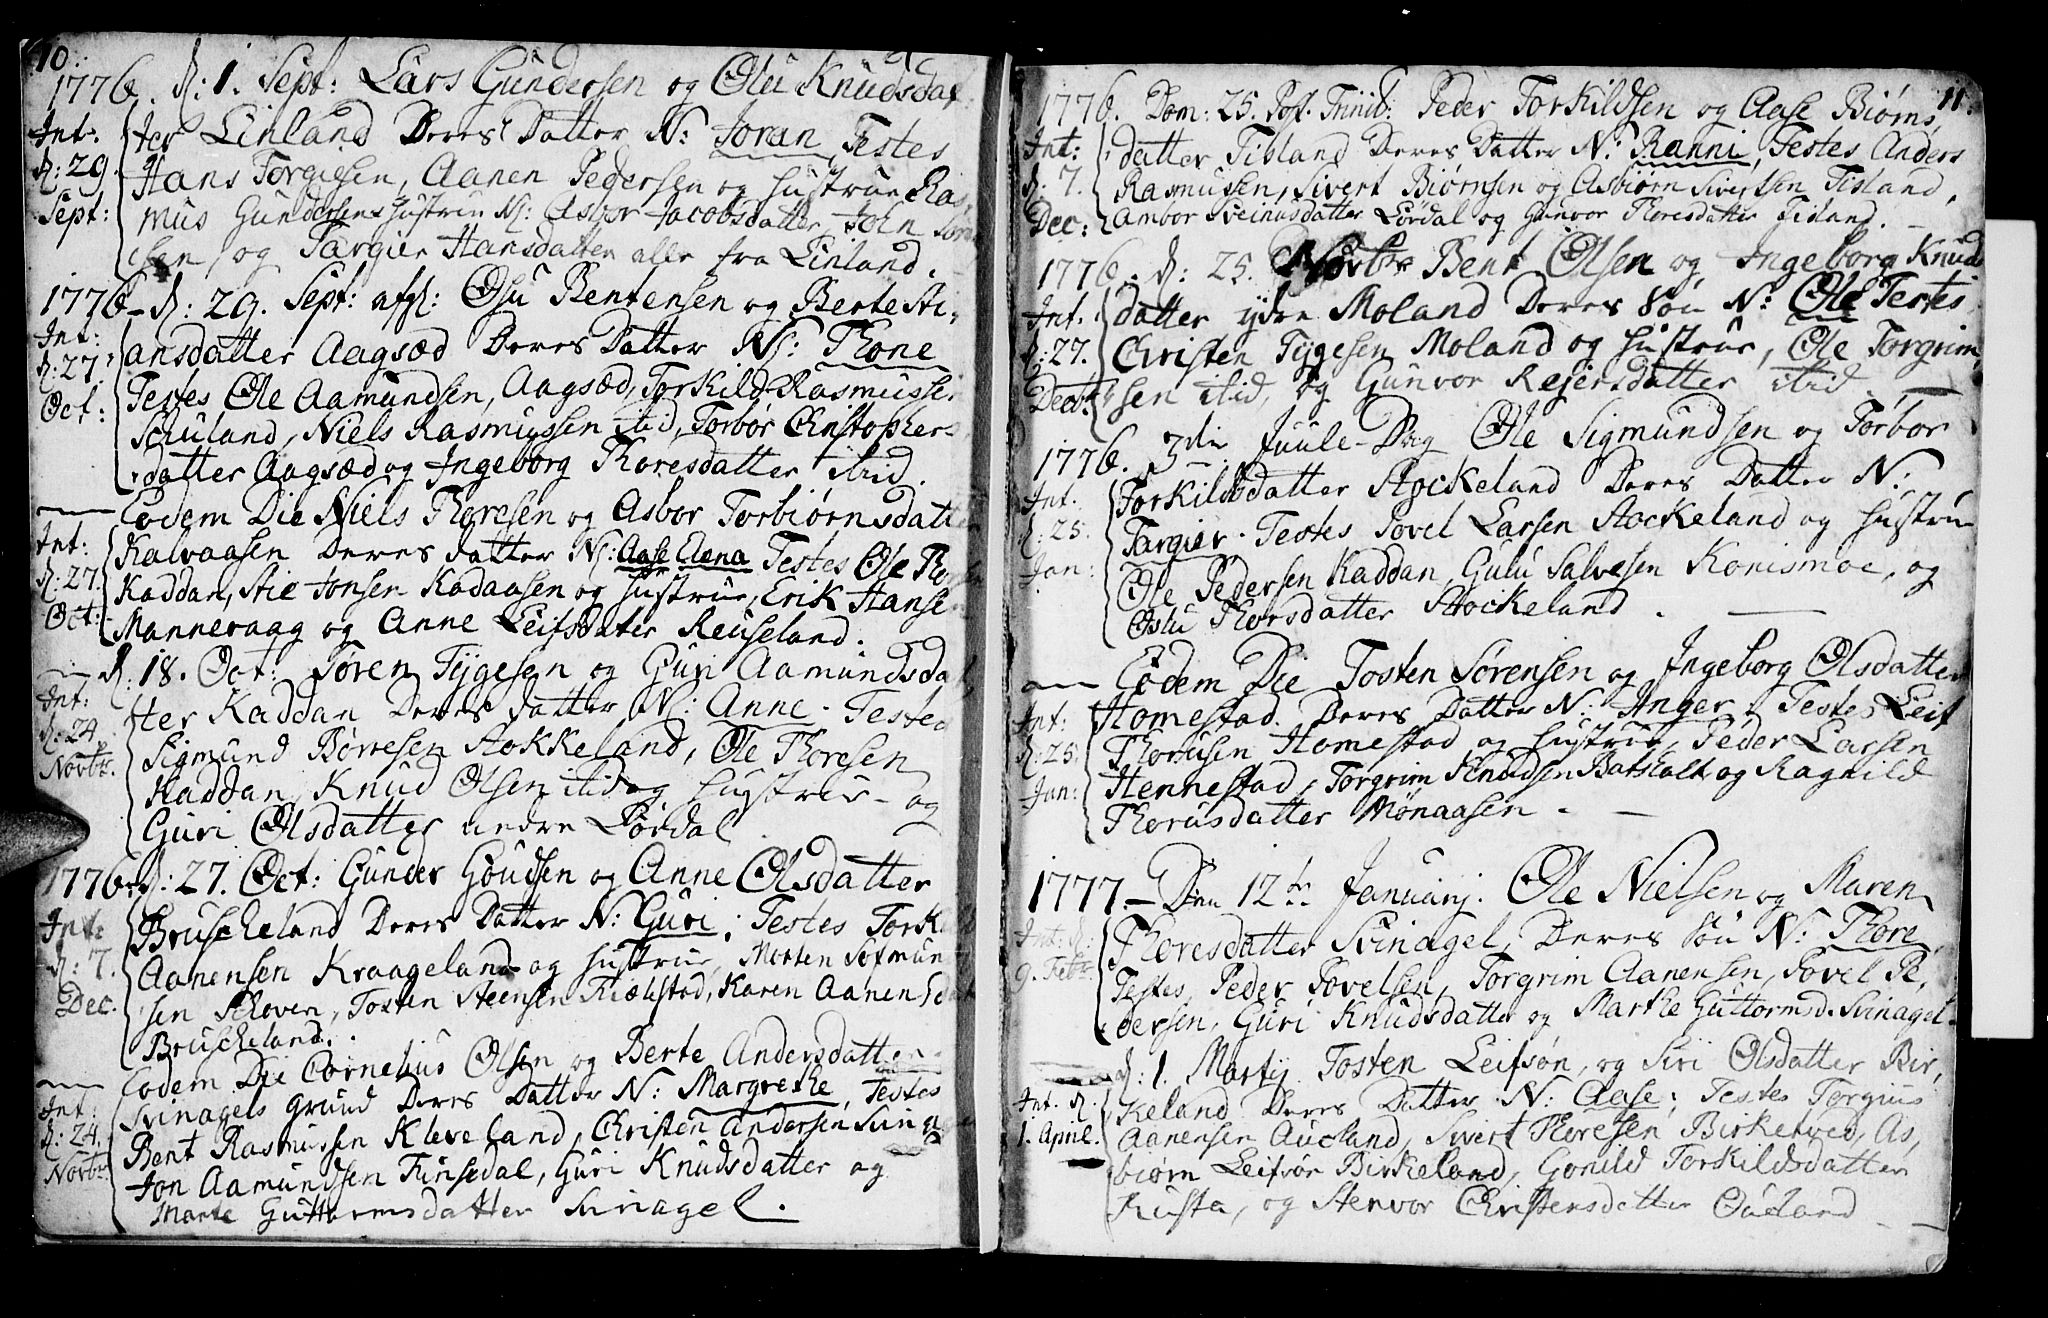 10.
1776. d: 1. Sept: Lars Gundersen og Olu Knudsdat
Int: ter Linland Deres Datter N: Joran, Testes
d: 29. Hans Torgiesen, Aanen Pedersen og Hustrue Ras
Sept: mus Gundersens Hustrue N: Asbor Jacobsdatter, John
sen, og Targier Hansdatter alle fra Linland.
1776 - d: 29. Sept: Osu Bentensen og Berte
Int: ansdatter Aagsæd Deres Datter N: Thone
d: 27. Testes Ole Aamundsen, Aagsæd, Torkild Rasmussen
Oct: Schuland, Niels Rasmussen ibid, Torbor Christophers
datter Aagsæd og Ingeborg Thoresdatter ibid.
Eodem Die Niels Thoresen og Asbor Torbiørnsdatter
Int: Kalvaasen Deres datter N: Aase Elena Testes Ole
d: 27. Kaddan, Stie Jonsen Kadaasen og Hustrue, Erik Hansen
Oct: Manneraag og Anne Leifsdatter Reuseland.
d: 18. Oct: Søren Tygesen og Guri Aamundsdat
Int: ter Kaddan Deres datter N: Anne. Testes
d: 24. Sigmund Børresen Stokkeland, Ole Thoresen
Novbr. Kaddan, Knud Olsen ibid og Hustrue - og
Guri Olsdatter nedre Lordal.
1776. d: 27. Oct: Gunder Goudsen og Anne Olsdatter
Int: Bruscheland Deres Datter N: Guri; Testes Torkild
d: 7. Aanensen Kraageland og Hustrue, Morten Sofmun
Dec. sen Schoven, Tosten Steensen Kialstad, Karen Aanensdat
Bruscheland.
Eodem Die Cornelius Olsen og Berte Andersdatter
Int: Svinagels grund Deres Datter N: Margrethe, Testes
d: 24. Bent Rasmussen Kleveland, Christen Andersen Svin
Novbr Jon Aamundsen Finsedal, Guri Knudsdatter og
Marte Guttormsdatter Svinagel.
11.
1776. Dom: 25. Post. Trinit: Peder Torkildsen og Aase Biørns,
Int: datter Tisland Deres Datter N: Ranni, Testes Anders
d: 7. Rasmussen, Sivert Biørnsen og Asbiørn Sivertsen Tisland,
Dec: Ambor Sveinusdatter Lordal og Gunvor Thoresdatter Tisland.
1776. d: 25. Novbr Bent Olsen og Ingeborg Knuds
Int. datter ydre Moland Deres Søn N: Ole Testes
d: 27. Christen Tygesen Moland og Hustrue, Ole Torgrim
Decbr. sen ibid, og Gunvor Rejersdatter ibid.
1776. 3die Juule-Dag Ole Sigmundsen og Torbor
Int. Torkildsdatter Stockeland Deres Datter N:
d: 25. Targier. Testes Tovel Larsen Stockeland og Hustrue
Jan: Ole Pedersen Kaddan, Gulu Salvesen Konismoe, og
Oslu Thorsdatter Stockeland.
Eodem Die Tosten Sørensen og Ingeborg Olsdatter
Int: Homestad. Deres Datter N: Anger, Testes Leif
d: 25. Thorusen Homestad og Hustrue, Peder Larsen
Jan: Hennestad, Torgrim Knudsen Batshalt og Ragnild
Thorusdatter Mønaasen.
1777 - Den 12te Januarij. Ole Nielsen og Maren
Int: d: Thoresdatter Svinagel, Deres Søn N: Thore,
9. Febr. Testes, Peder Tovelsen, Torgrim Aanensen, Tovel Pe,
dersen, Guri Knudsdatter og Marthe Guttormsd. Svinagel.
d: 1. Martij Tosten Leifsøn, og Siri Olsdatter Bir,
Int. d. keland Deres Datter N: Aase; Testes Torgius
1. April. Aanensen Aucland, Sivert Thoresen Birketved, As,
biørn Leifsøn Birkeland, Gonild Torkildsdatter
Rusta, og Stenvor Christensdatter Oueland